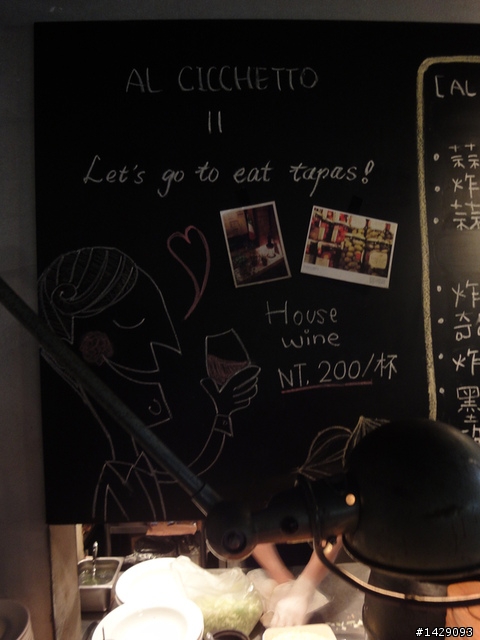 AL CICCHETTO
||
Let's go to eat tapas!
House
wine
NT. 200/杯
[AL
· 蒜
· 炸
· 蒜
· 炸
· 奇
· 炸
· 黑
#1429093